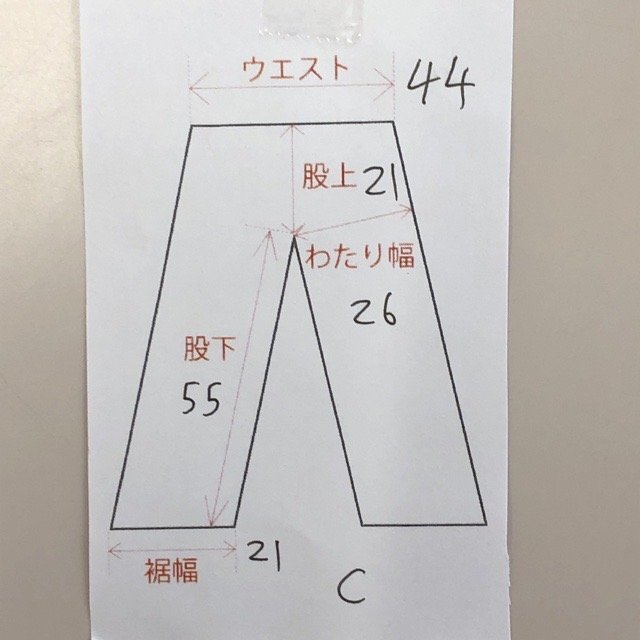 ウエスト 44
股上 21
わたり幅
26
股下
55
裾幅 21
C